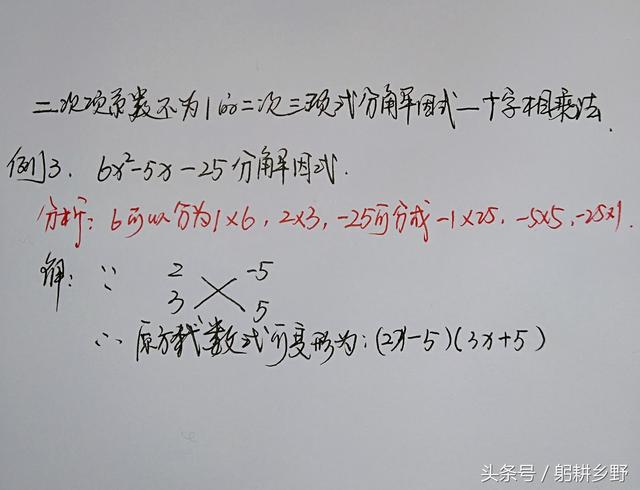 二次项系数不为1的二次三项式分解因式—十字相乘法.
例3. 6x²-5x-25分解因式.
分析：6可以分为1×6, 2×3, -25可分成-1×25, -5×5, -25×1.
解：∵ 2 -5
3 5
∴ 原代数式可变形为：(2x-5)(3x+5)
头条号／躬耕乡野